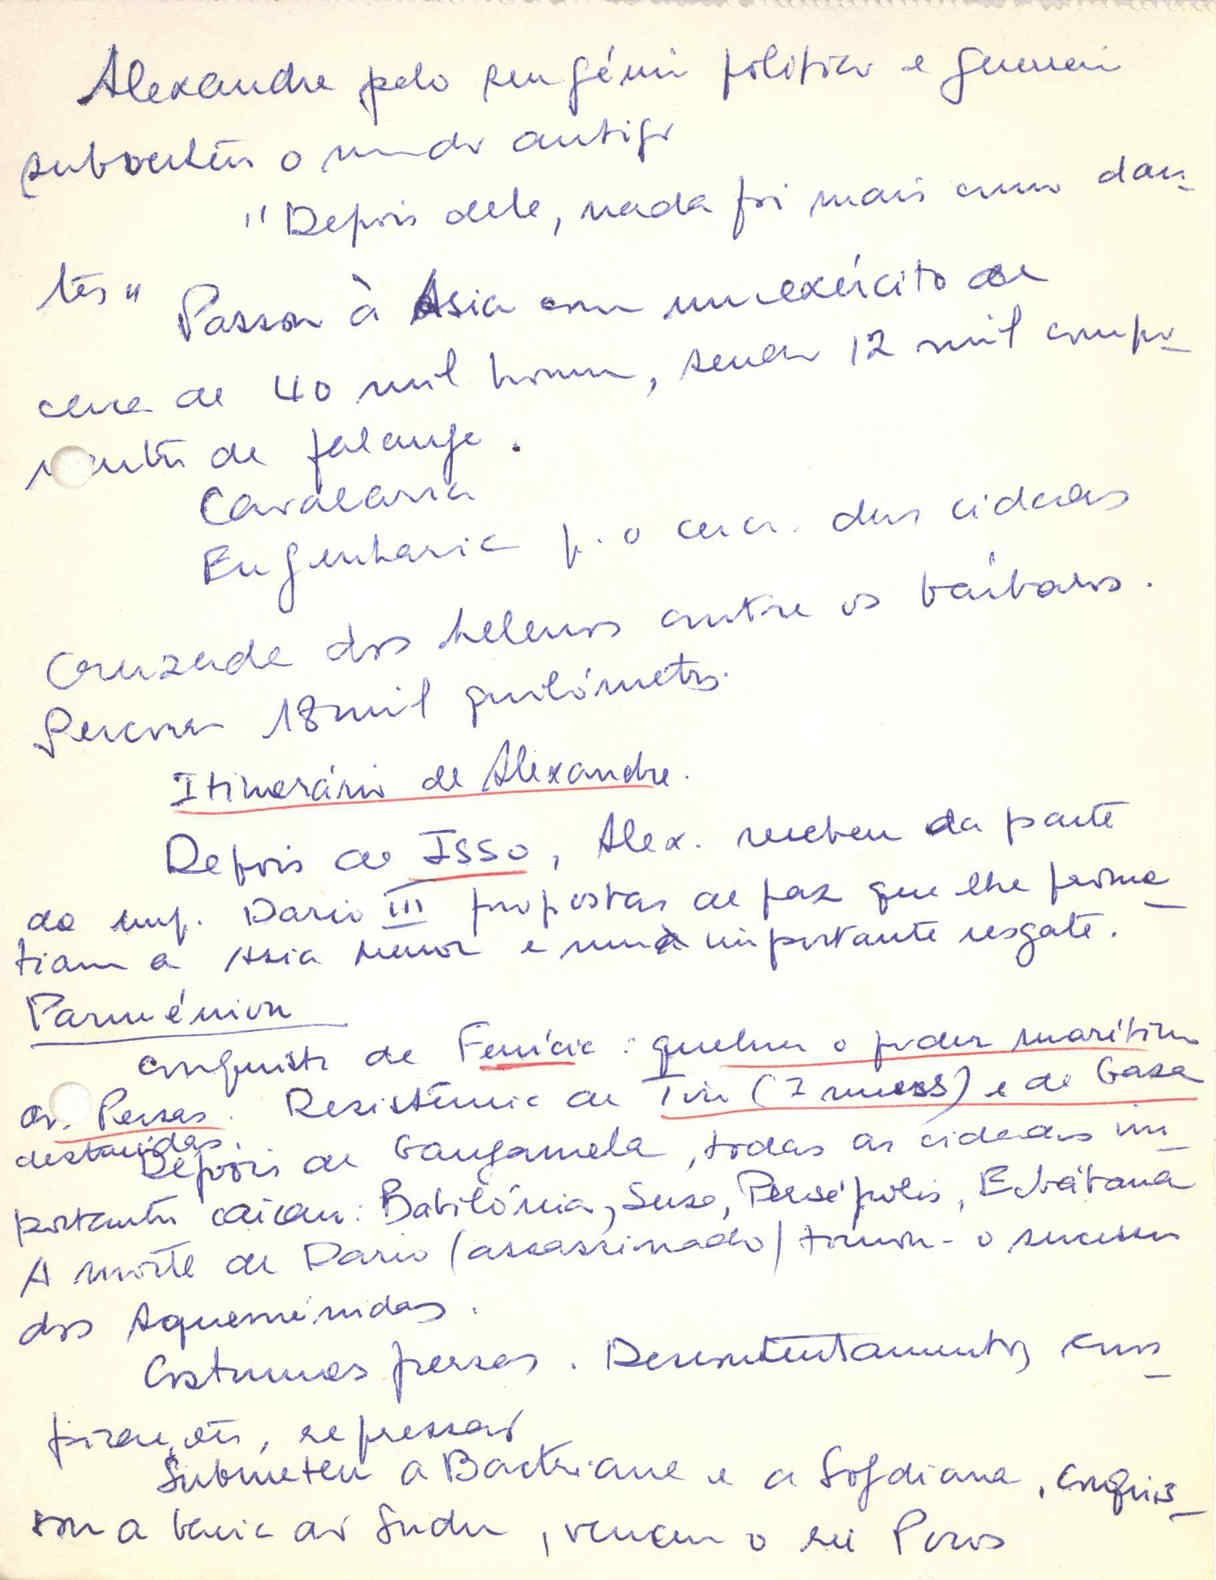 Alexandre pelo seu génio político e guerreiro
subverteu o mundo antigo
"Depois dele, nada foi mais como dan-
tes" Passou à Asia com um exército de
cerca de 40 mil homens, sendo 12 mil compo-
nentes de falange.
Cavalaria
Engenharia p. o cerco das cidades
Cruzada dos helenos contra os bárbaros.
Percorreu 18 mil quilómetros.
Itinerário de Alexandre.
Depois de Isso, Alex. recebeu da parte
do imp. Dario III propostas de paz que lhe prome-
tiam a Asia Menor e um importante resgate.
Parménion
Conquista de Fenícia: quebrou o poder marítimo
dos Persas. Resistência de Tiro (7 meses) e de Gaza
destruidas.
Depois de Gaugamela, todas as cidades im-
portantes caíam: Babilónia, Susa, Persépolis, Ecbátana
A morte de Dario (assassinado) tornou-o sucessor
dos Aqueménidas.
Costumes persas. Descontentamentos, cons-
pirações, repressão
Submeteu a Bactriana e a Sogdiana, conquis-
tou a bacia do Indu, venceu o rei Poros